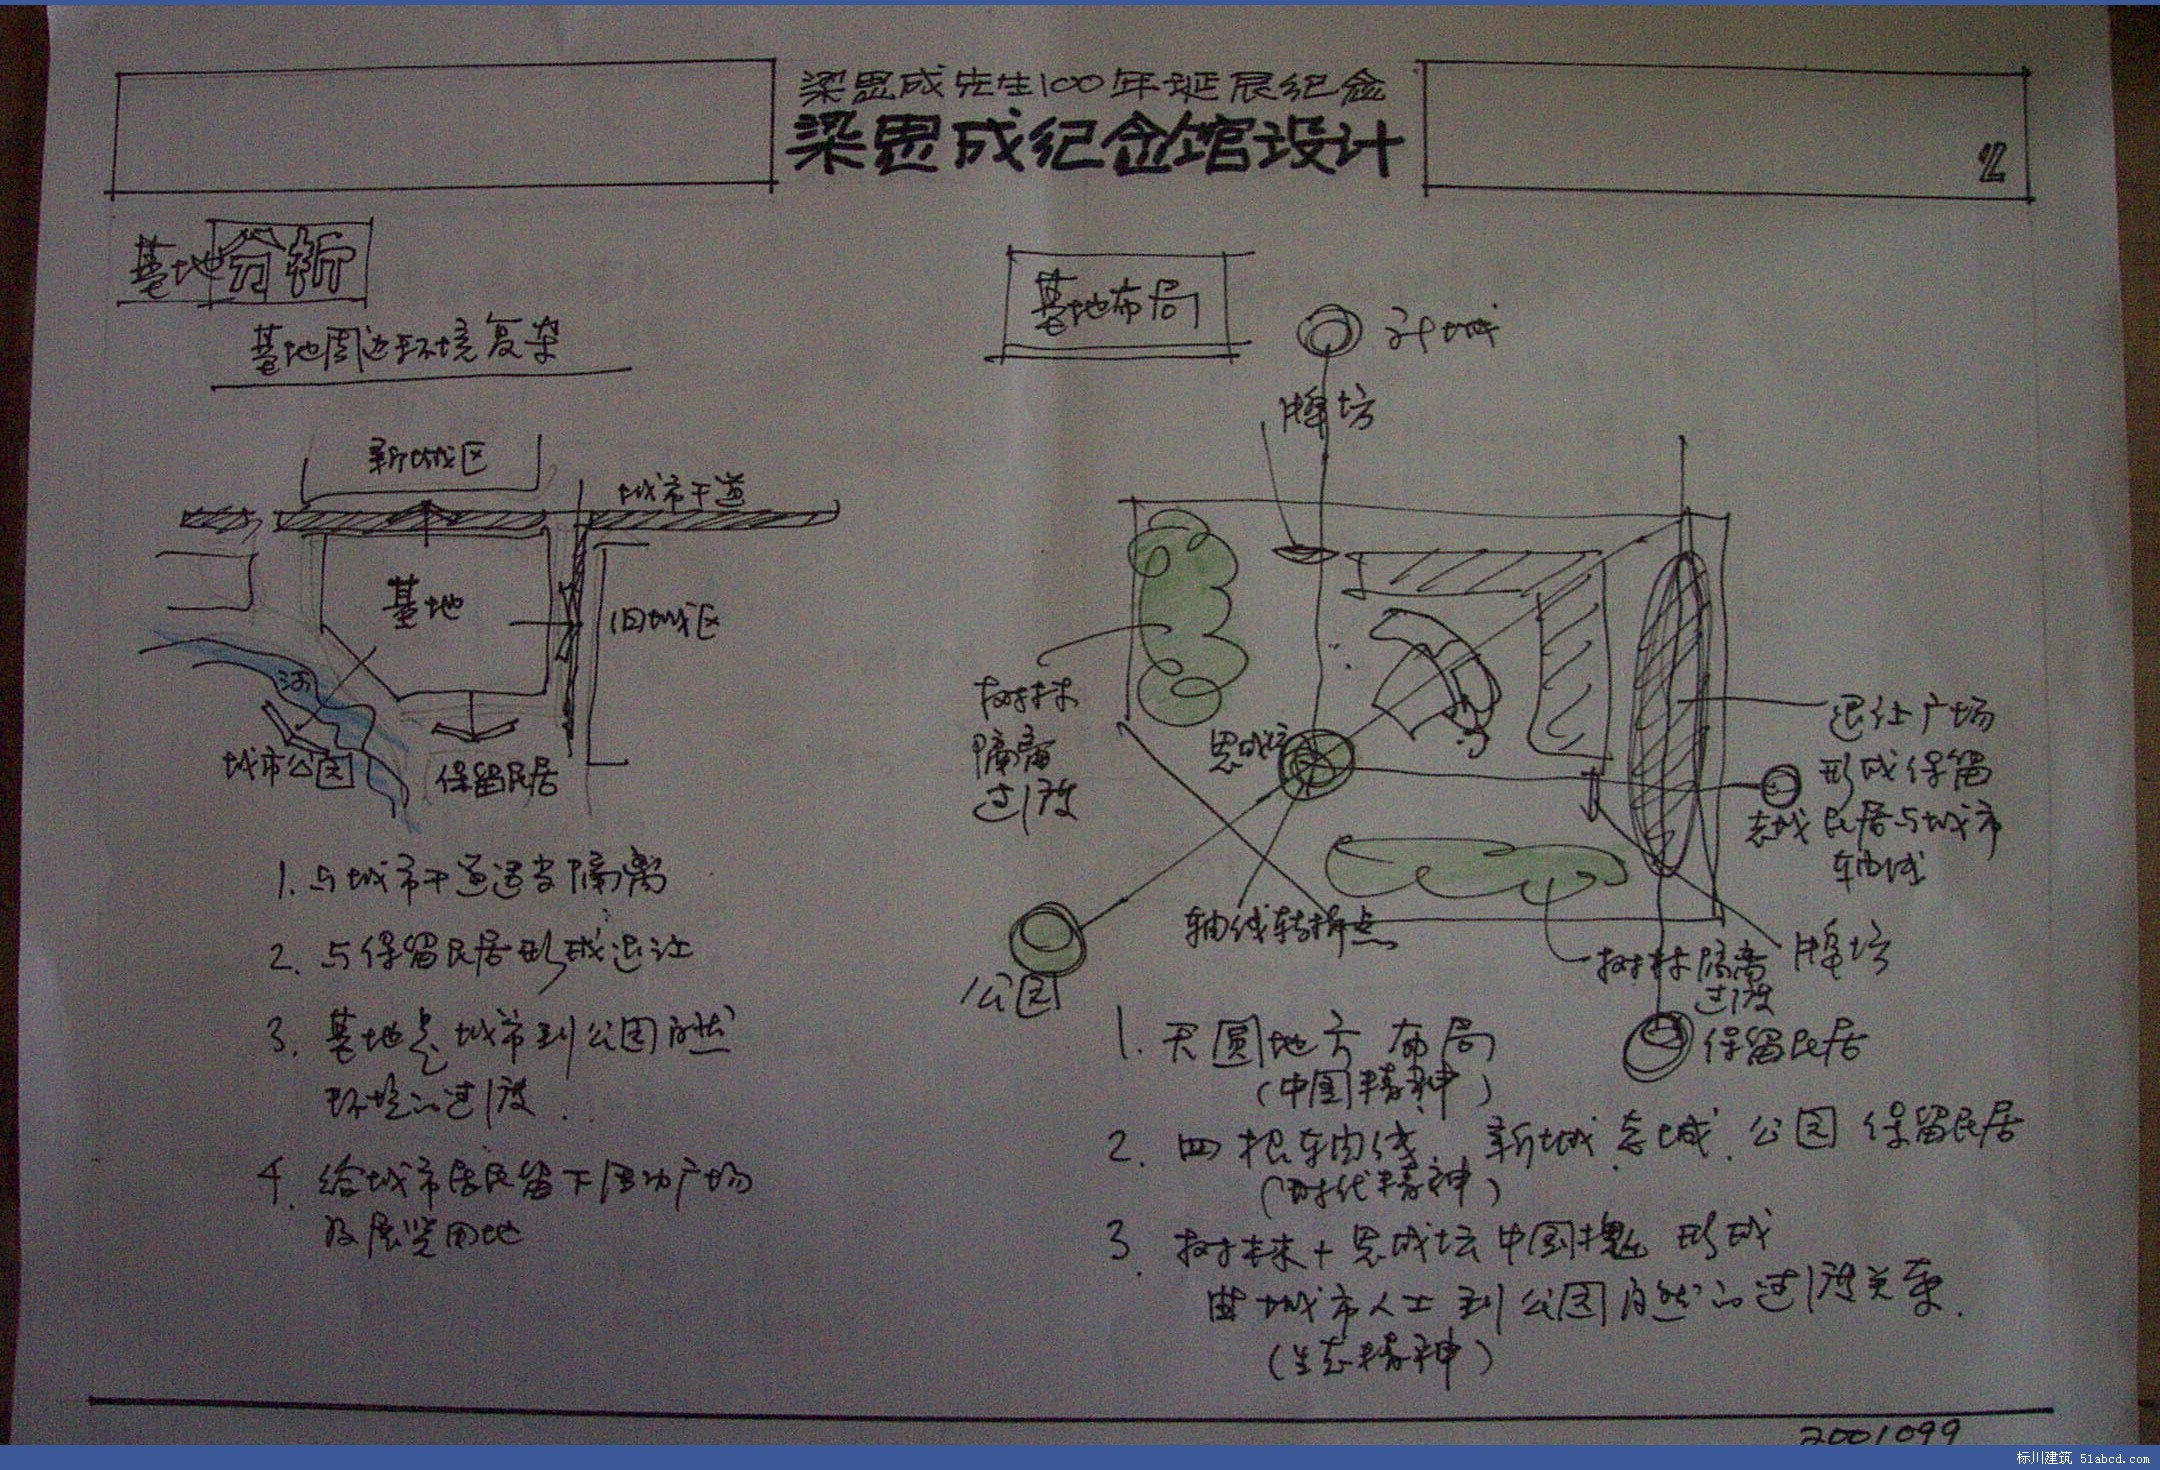 梁思成先生100年诞辰纪念
梁思成纪念馆设计
12
基地分析
基地周边环境复杂
新城区
城市干道
基地
旧城区
河
城市公园
保留民居
1. 与城市干道适当隔离
2. 与保留民居形成退让
3. 基地是城市到公园自然
环境的过渡.
4. 给城市居民留下活动广场
及展览用地
基地布局
新城
牌坊
树林
隔离
过渡
思成坛
退让广场
形成保留
民居与城市
轴线
老城
轴线转折点
公园
树林隔离
过渡
牌坊
保留民居
1. 天圆地方 布局
(中国精神)
2. 四根轴线. 新城.老城.公园 保留民居
(时代精神)
3. 树林+思成坛中国槐 形成
由城市人工到公园自然的过渡关系.
(生态精神)
2001099
标川建筑 51abcd.com